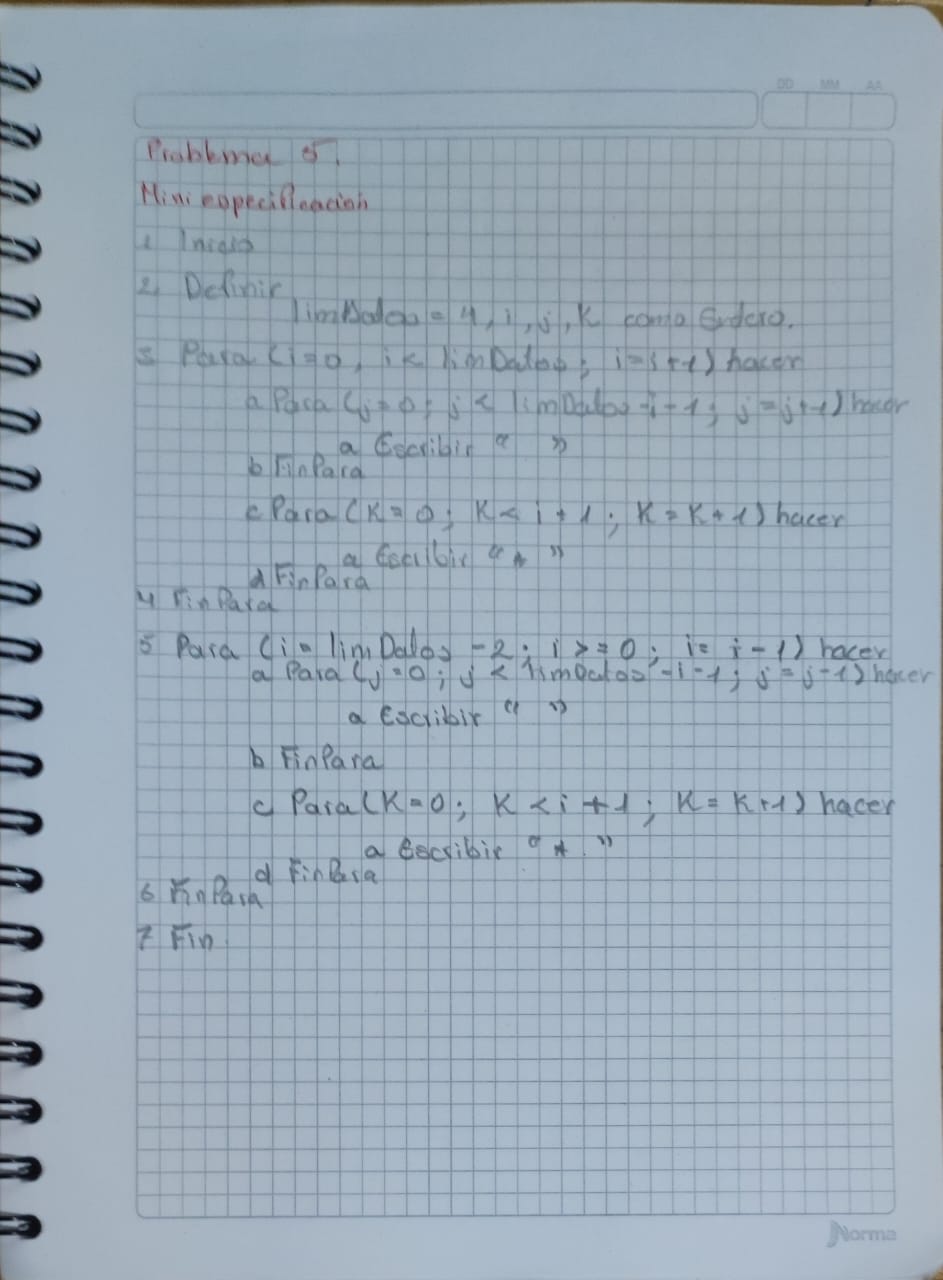 DD MM AA
Problema 5.
Mini especificación
1 Inicio
2 Definir
limDatos = 4, i, j, K como Entero.
3 Para (i=0, i< limDatos; i=i+1) hacer
a Para (j=0; j< limDatos-i-1; j=j+1) hacer
a Escribir " "
b FinPara
c Para (K=0; K< i+1; K=K+1) hacer
a Escribir "* "
d FinPara
4 FinPara
5 Para (i= limDatos -2; i>=0; i= i-1) hacer
a Para (j=0; j< limDatos -i-1; j=j-1) hacer
a Escribir " "
b FinPara
c Para (K=0; K<i+1; K=K+1) hacer
a Escribir "* "
d FinPara
6 FinPara
7 Fin.
Norma